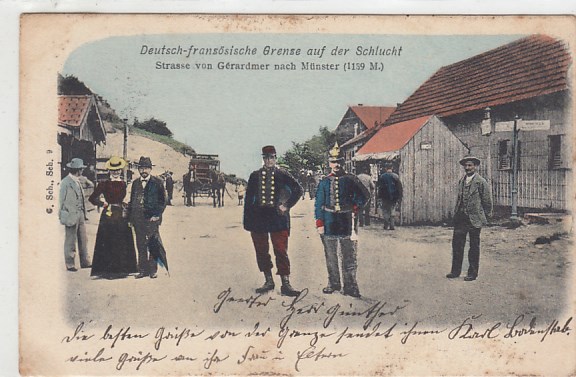 Deutsch-französische Grenze auf der Schlucht
Strasse von Gérardmer nach Münster (1139 M.)
G. Sch., Sch. 9
Geerter Herr Günther
Die besten Grüße von der Grenze sendet ihnen Karl Bodenstab.
viele Grüße an ihr Frau u Eltern